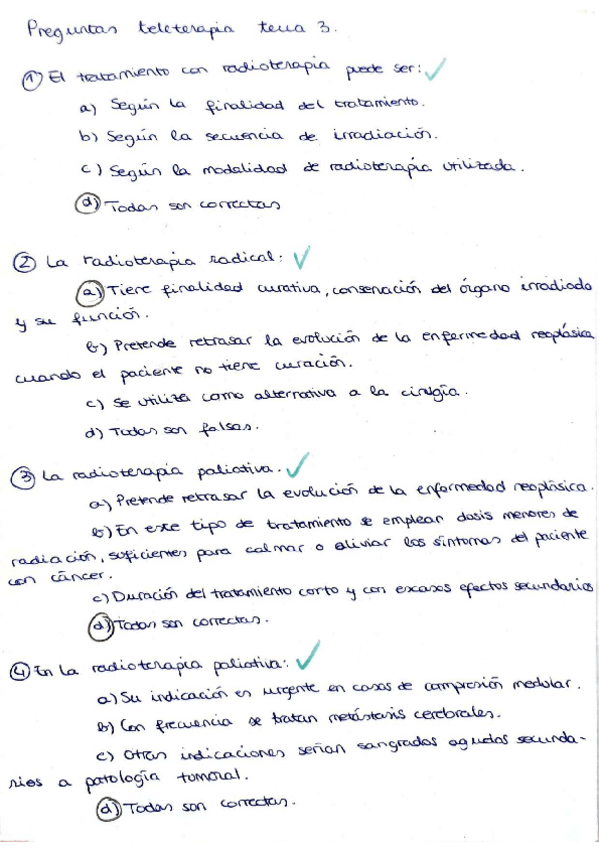 Preguntas teleterapia tema 3.
① El tratamiento con radioterapia puede ser:
a) Según la finalidad del tratamiento.
b) Según la secuencia de irradiación.
c) Según la modalidad de radioterapia utilizada.
d) Todas son correctas
② La radioterapia radical:
a) Tiene finalidad curativa, conservación del órgano irradiado
y su función.
b) Pretende retrasar la evolución de la enfermedad neoplásica
cuando el paciente no tiene curación.
c) Se utiliza como alternativa a la cirugía.
d) Todas son falsas.
③ La radioterapia paliativa.
a) Pretende retrasar la evolución de la enfermedad neoplásica.
b) En este tipo de tratamiento se emplean dosis menores de
radiación, suficientes para calmar o aliviar los síntomas del paciente
con cáncer.
c) Duración del tratamiento corto y con escasos efectos secundarios
d) Todas son correctas.
④ En la radioterapia paliativa:
a) Su indicación es urgente en casos de compresión medular.
b) Con frecuencia se tratan metástasis cerebrales.
c) Otras indicaciones serían sangrados agudos secunda-
rios a patología tumoral.
d) Todas son correctas.